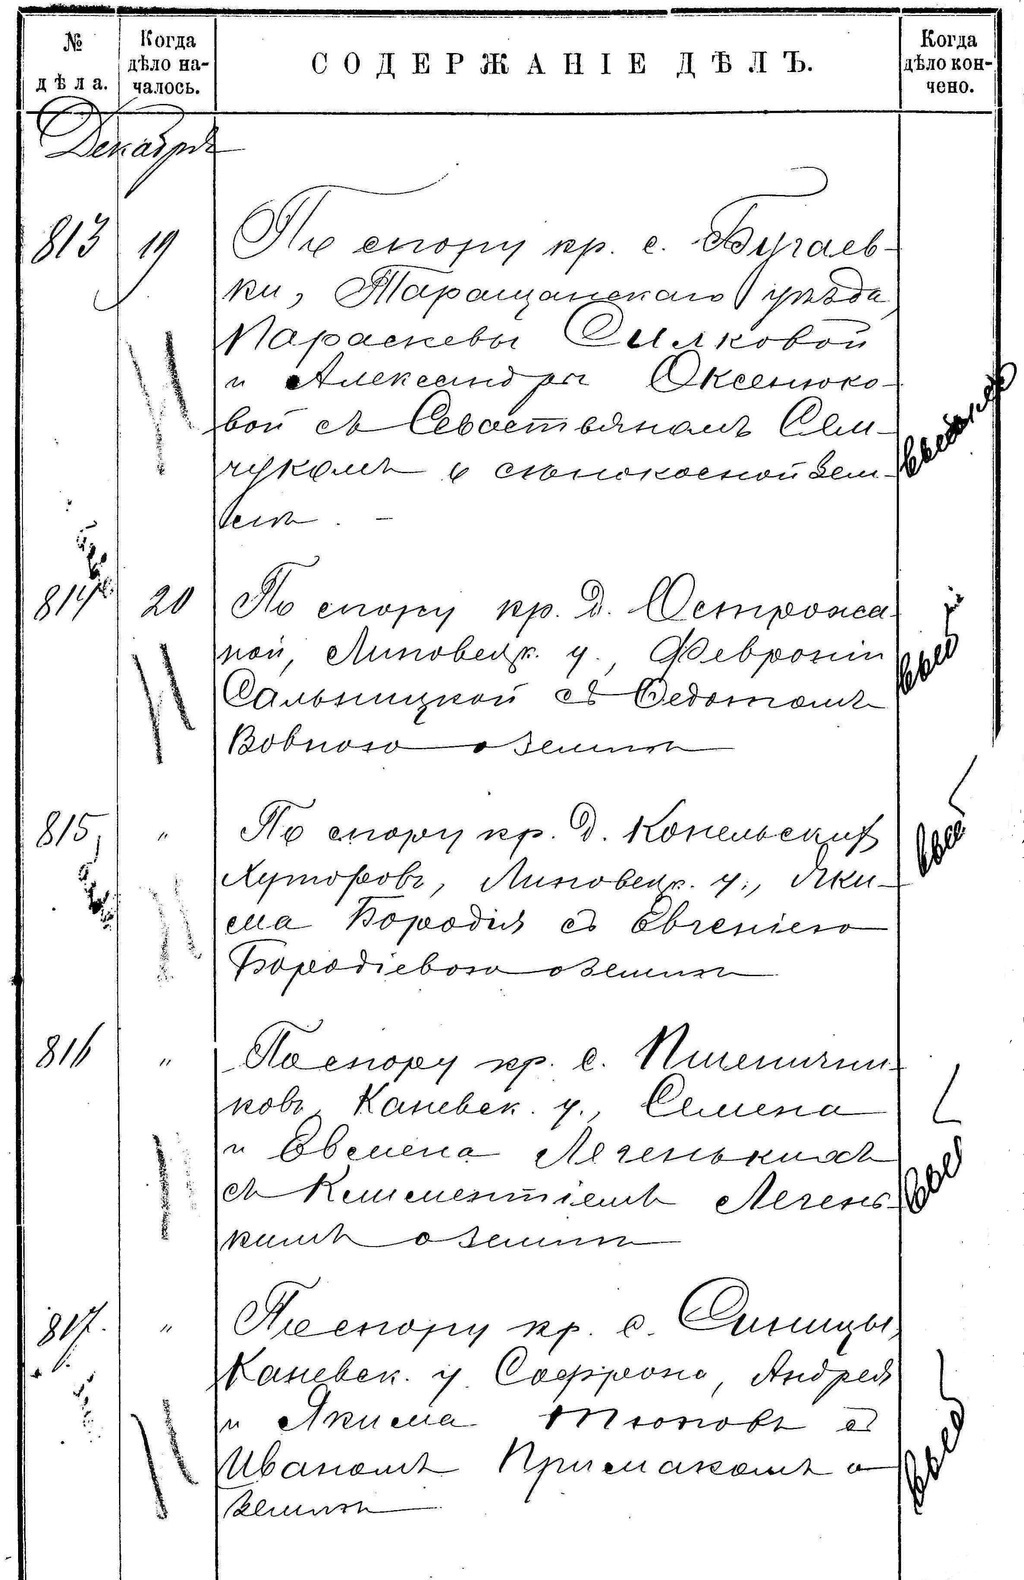 №
дѣла.
Когда
дѣло на-
чалось.
СОДЕРЖАНІЕ ДѢЛЪ.
Когда
дѣло кон-
чено.
Декабрь
813 19 По спору кр. с. Бугаев-
ки, Таращанскаго уѣзда,
Параскевы Силковой
и Александры Оксенюко-
вой съ Севастьяномъ Сем-
чукомъ о сѣнокосной зем-
лѣ. -
814 20 По спору кр. д. Острожса-
ной, Липовецк. у., Февроніи
Сальницкой съ Федотомъ
Вовного о землѣ
815 " По спору кр. д. Конельских
Хуторовъ, Липовецк. у., Яки-
ма Бородія съ Евгеніею
Бородіевою о землѣ
816 " По спору кр. с. Пшенични-
ковъ, Каневск. у., Семена
и Евсмена Легенькихъ
съ Климентіемъ Легень-
кимъ о землѣ
817. " По спору кр. с. Синицы,
Каневск. у. Софрона, Андрея
и Якима Тюповъ съ
Иваномъ Примакомъ о
землѣ